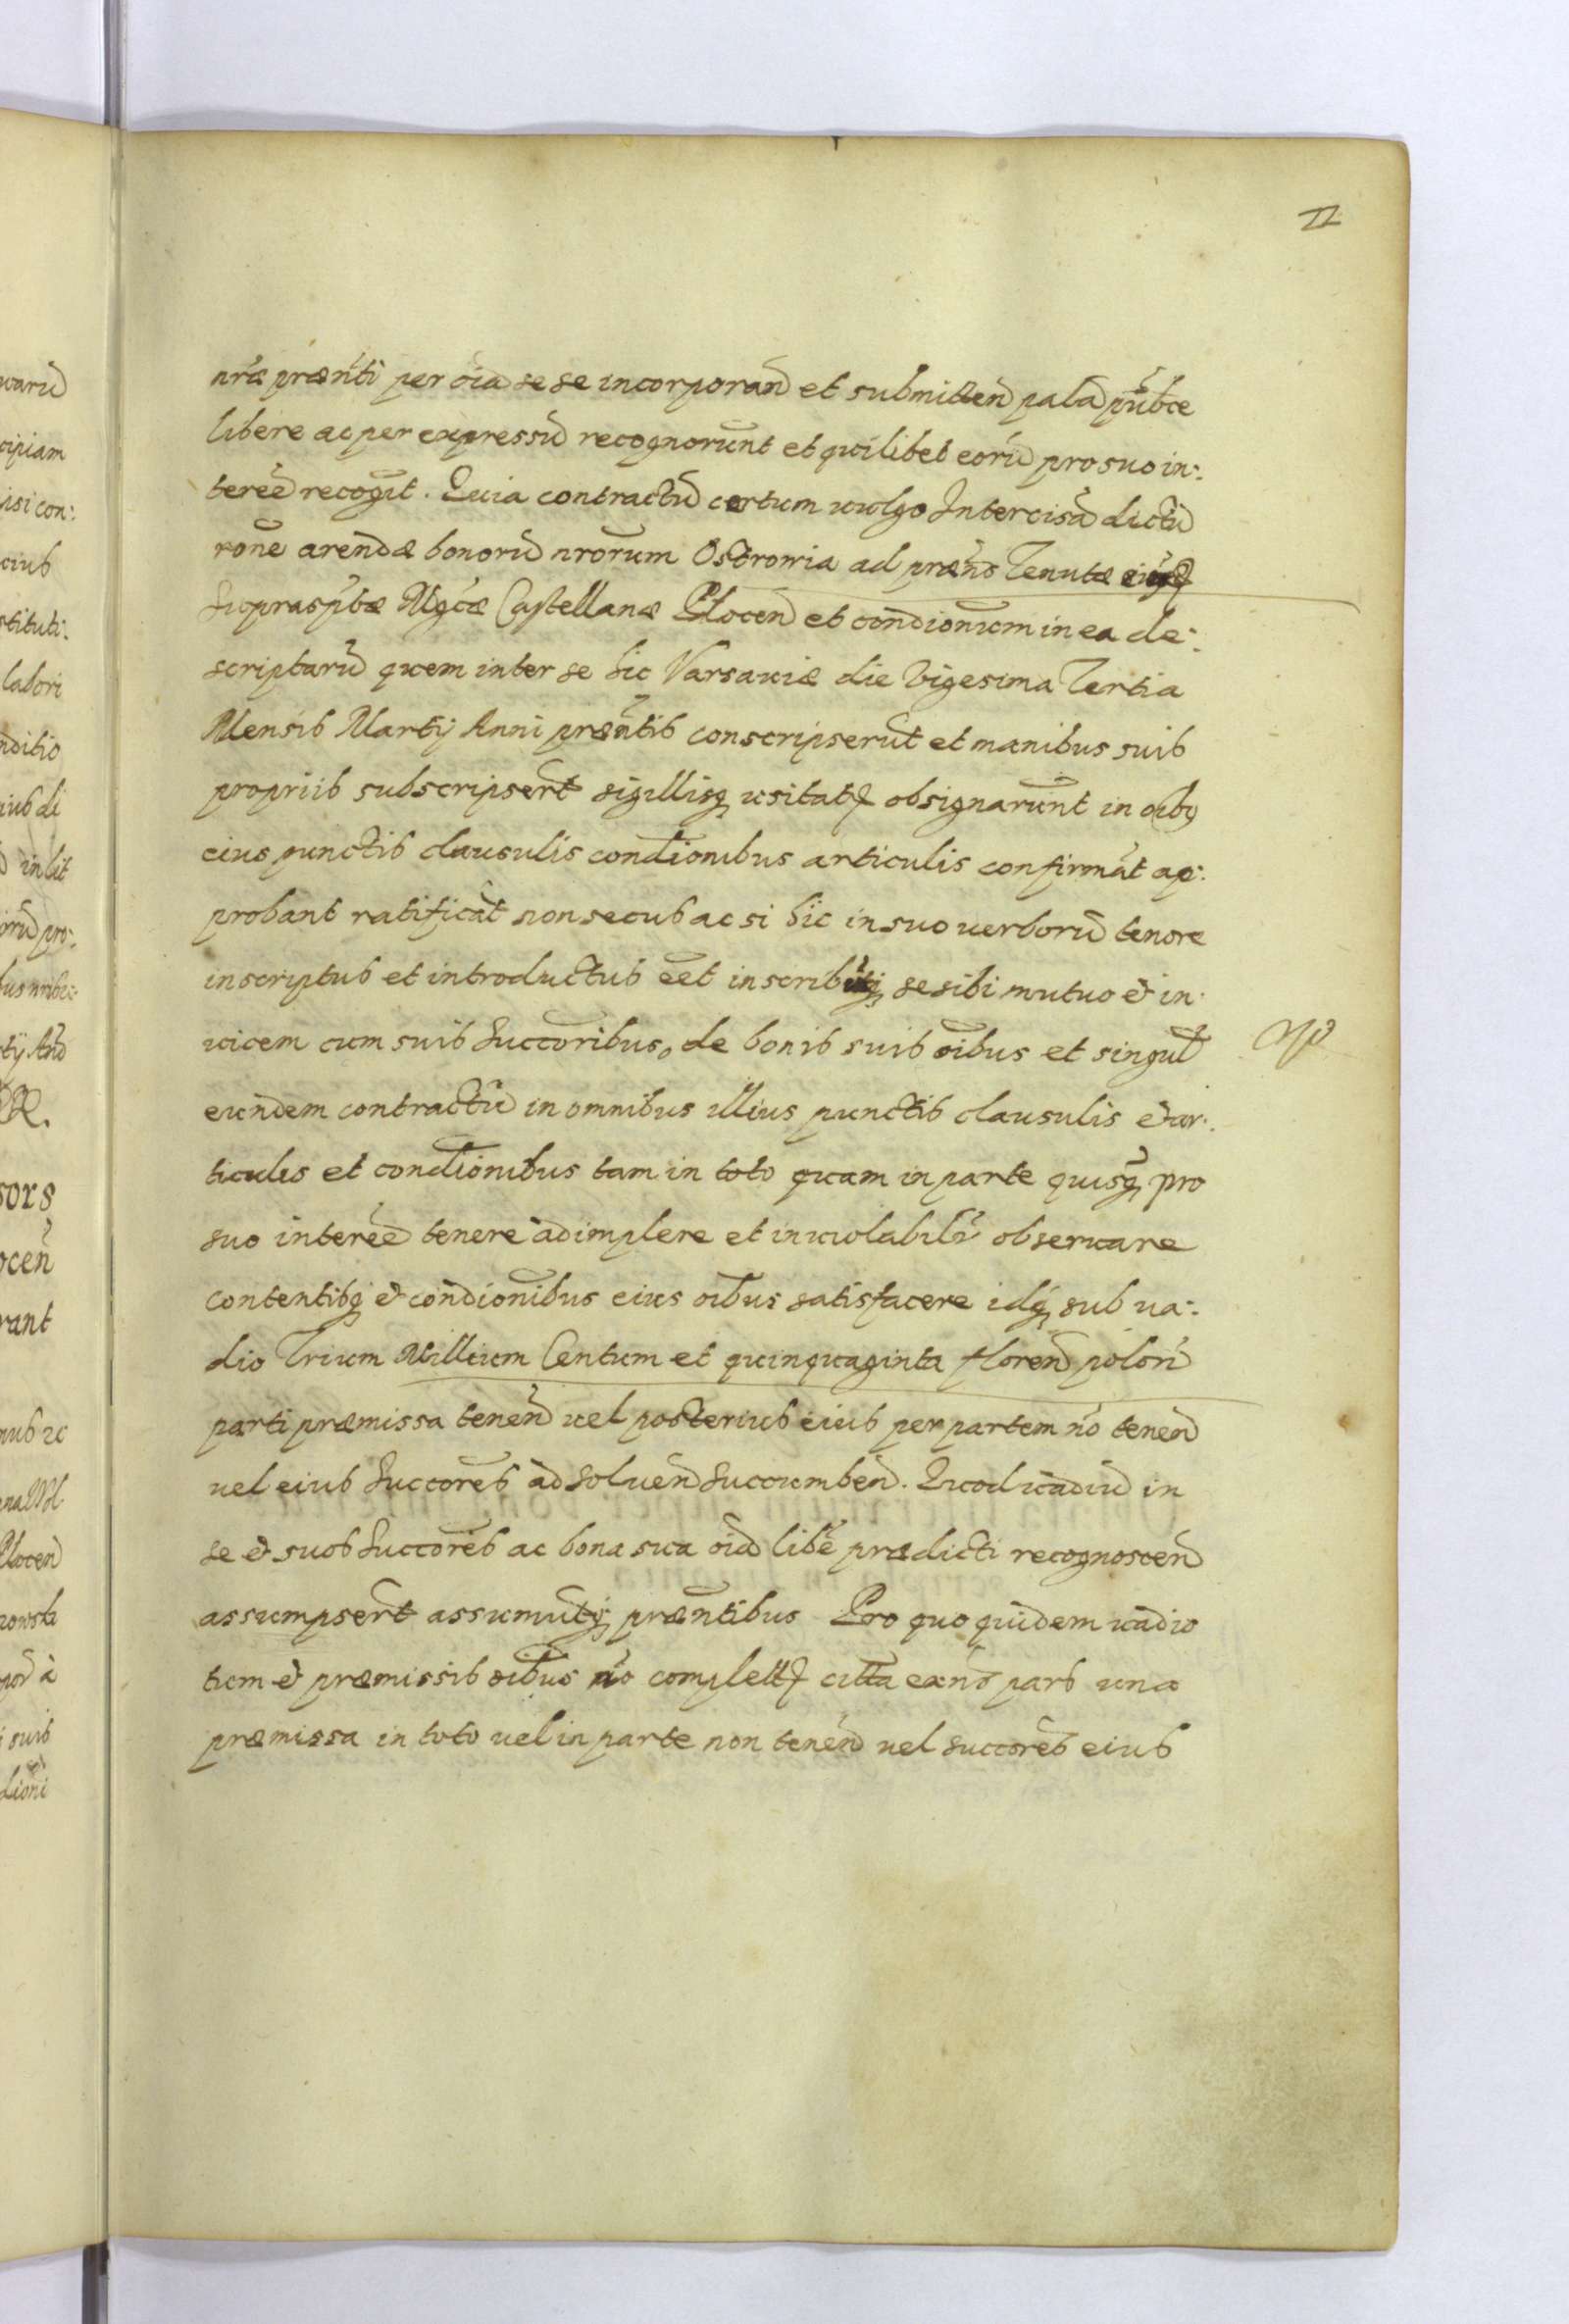 11
nrae praenti per oia se se incorporan et submitten pala publce
libere ac per expressu recognorunt et quilibet eoru pro suo in:
teree recogit. Quia contractu certum uulgo Intercisa dictu
rone arendae bonoru nrorum Ostrowia ad praens Tenutae
suprasptae Mgcae Castellanae Plocen et condionum in ea de:
scriptaru quem inter se hic Varsauiae die Vigesima Tertia
Mensis Martij Anni praentis conscripserut et manibus suis
propriis subscripsert sigillisq usitat obsignarunt in oibq
eius punctis clausulis condionibus articulis confirmat ap:
probant ratificat non secus ac si hic in suo uerboru tenore
inscriptus et introductus eet inscributq se sibi mutuo & in:
uicem cum suis Succoribus, de bonis suis oibus et singul
eundem contractu in omnibus illius punctis clausulis & ar:
ticulis et condionibus tam in toto quam in parte quisq pro
suo interee tenere adimplere et inuiolabilr obseruare
contentisq & condionibus eius oibus satisfacere idq sub ua:
dio Trium Millium Centum et quinquaginta floren polon
parti praemissa tenen uel posterius eius per partem no tenen
uel eius Succores ad soluen succumben. Quod uadiu in
se & suos Succores ac bona sua oia libe praedicti recognoscen
assumpsert assumutq praentibus Pro quo quidem uadio
tum & praemissis oibus no complett citta exns pars una
praemissa in toto uel in parte non tenen uel succores eius